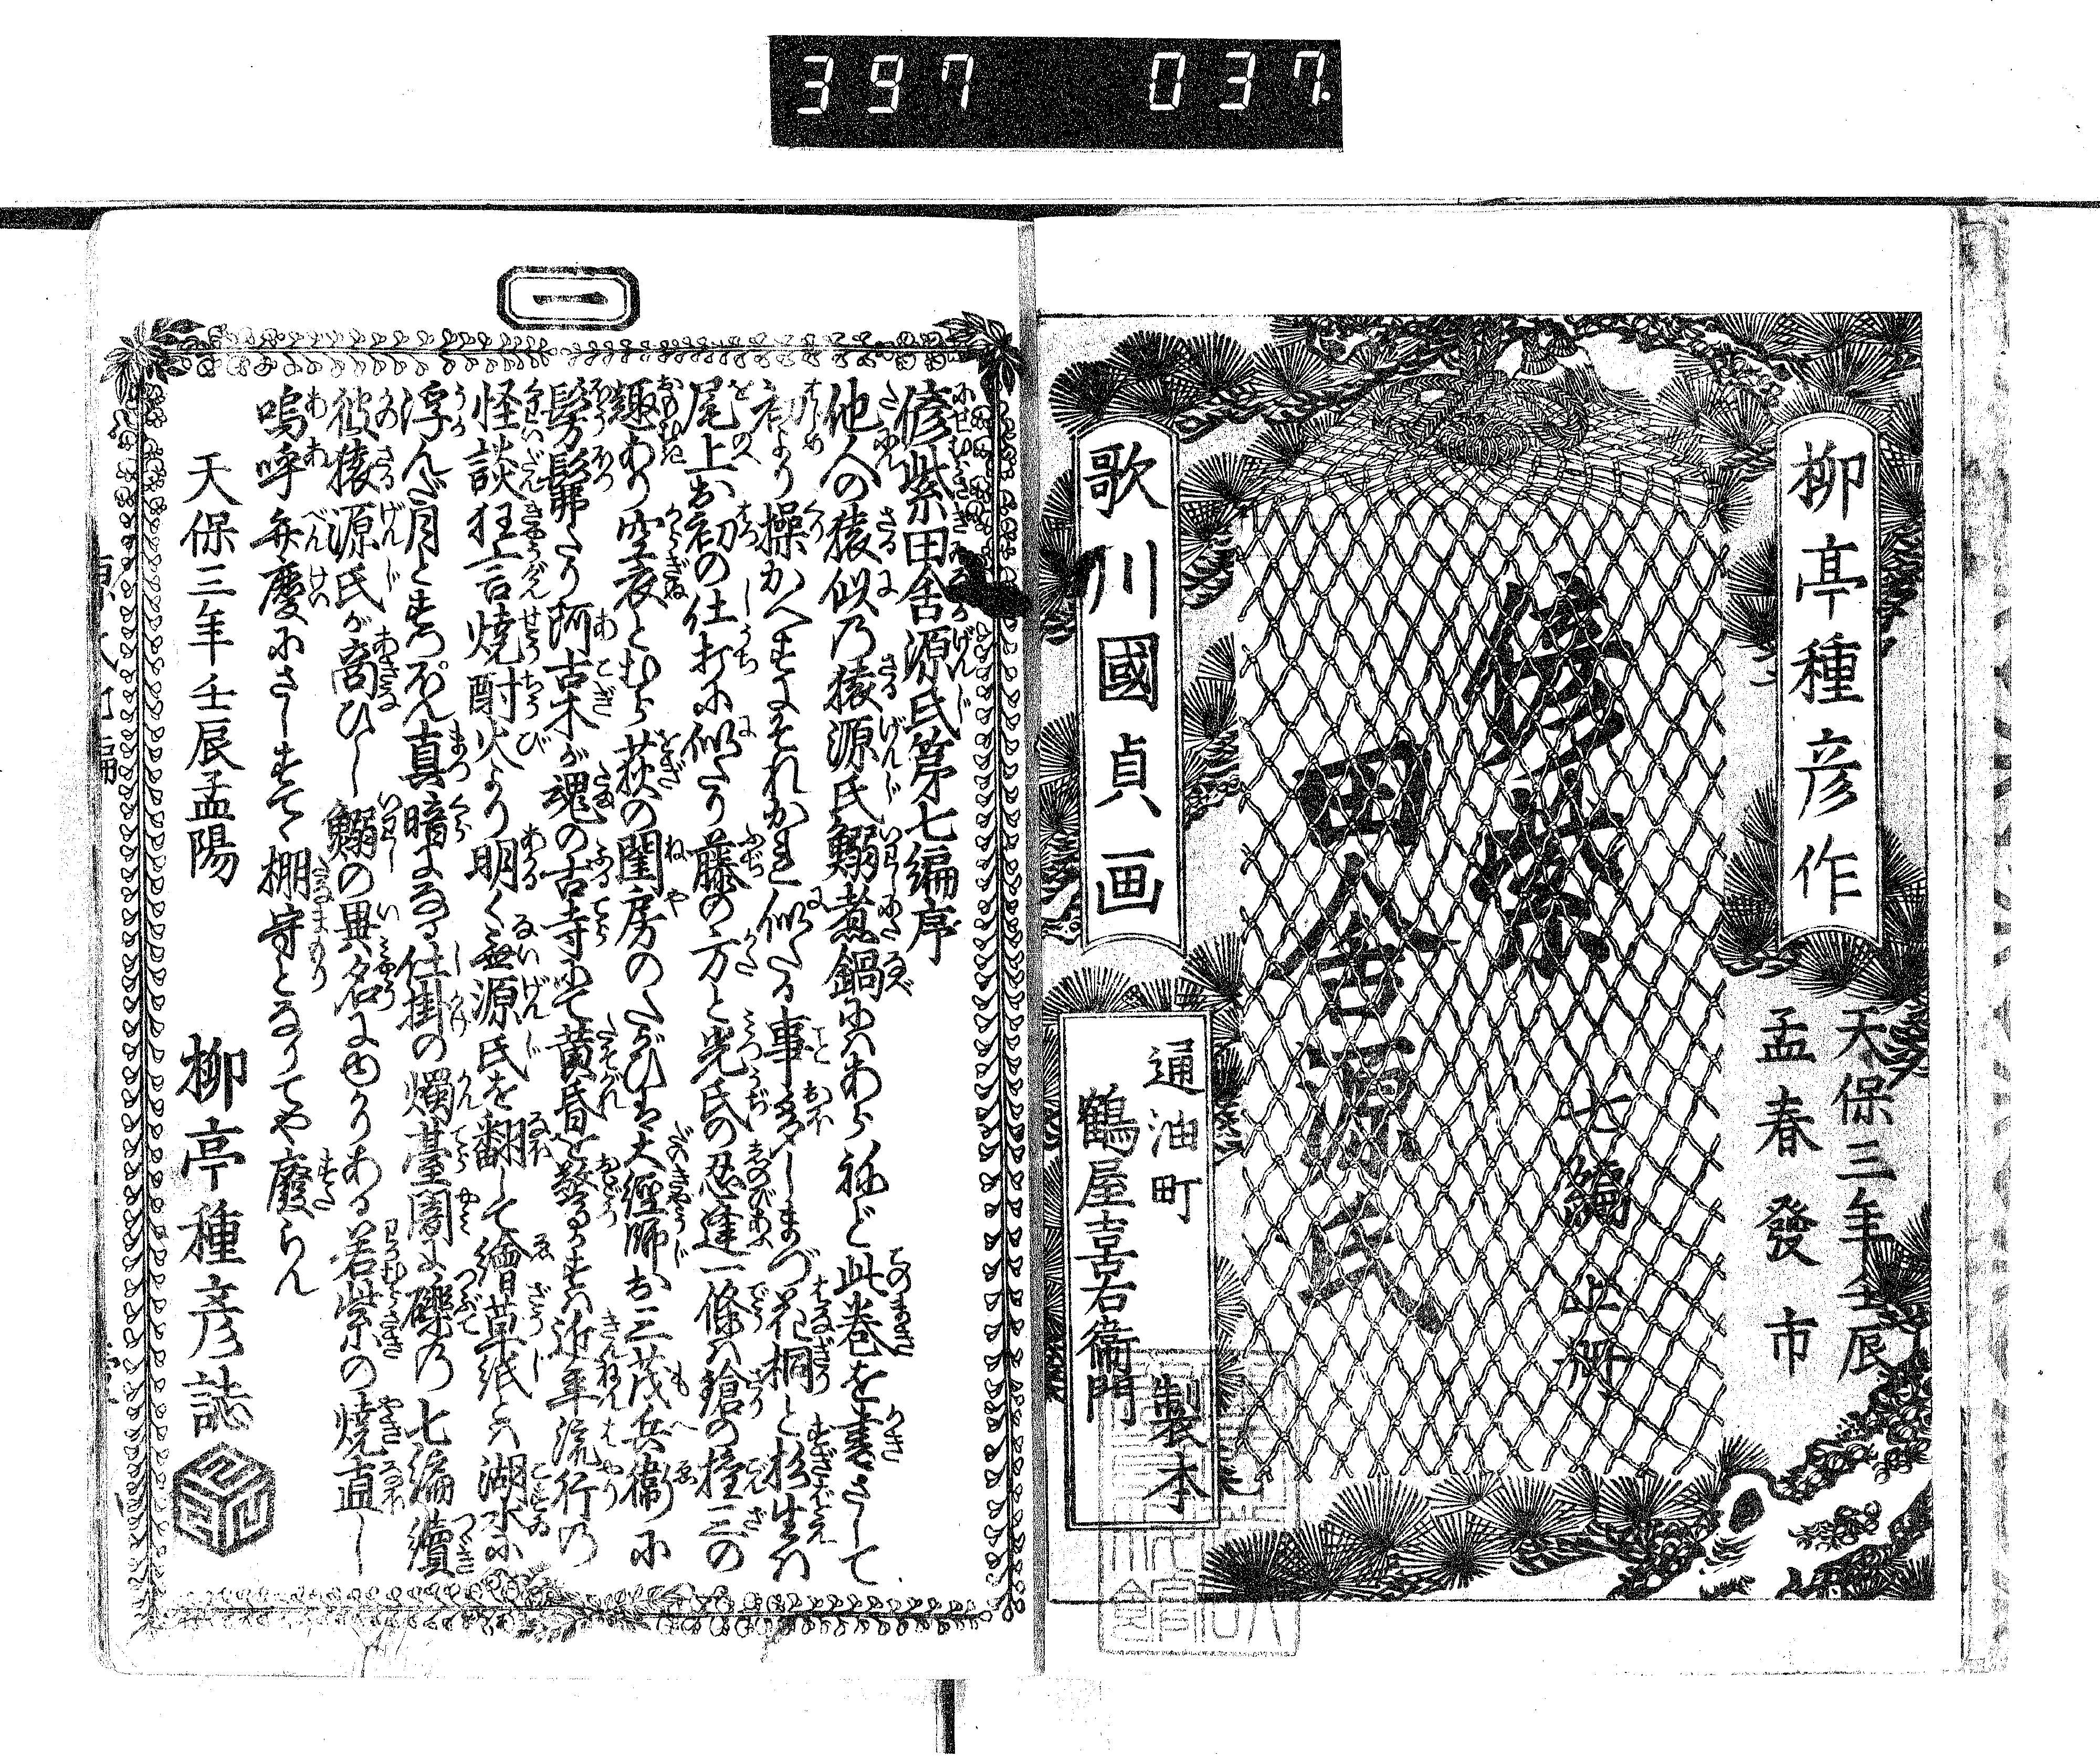 397 037
柳亭種彦作
天保三年壬辰
孟春發市
偐紫
田舎源氏
七編上冊
歌川國貞画
通油町
製本
鶴屋喜右衛門
一
偐紫田舎源氏第七編序
他人の猿似乃猿源氏鰯煮鍋にハあらねど此巻を書さして
初より操かへすにそれかれ似たる事多しまづ花桐と杉生ハ
尾上お初の仕打に似たり藤の方と光氏の忍逢一條ハ鎗の権三の
趣あり空衣とむら荻の閨房のたがひハ大經師お三茂兵衛に
髣髴たり阿古木が魂の古寺にて黄昏を驚すハ近年流行乃
怪談狂言焼酎火より明く無源氏を翻して繪草紙とハ湖水に
浮んだ月とすつぽん真暗なる仕掛の燭臺闇に礫乃七編續
彼猿源氏が商ひし鰯の異名にゆかりある若紫の焼直し
嗚呼弁慶にさしすて棚守となりてや廢らん
天保三年壬辰孟陽
柳亭種彦誌